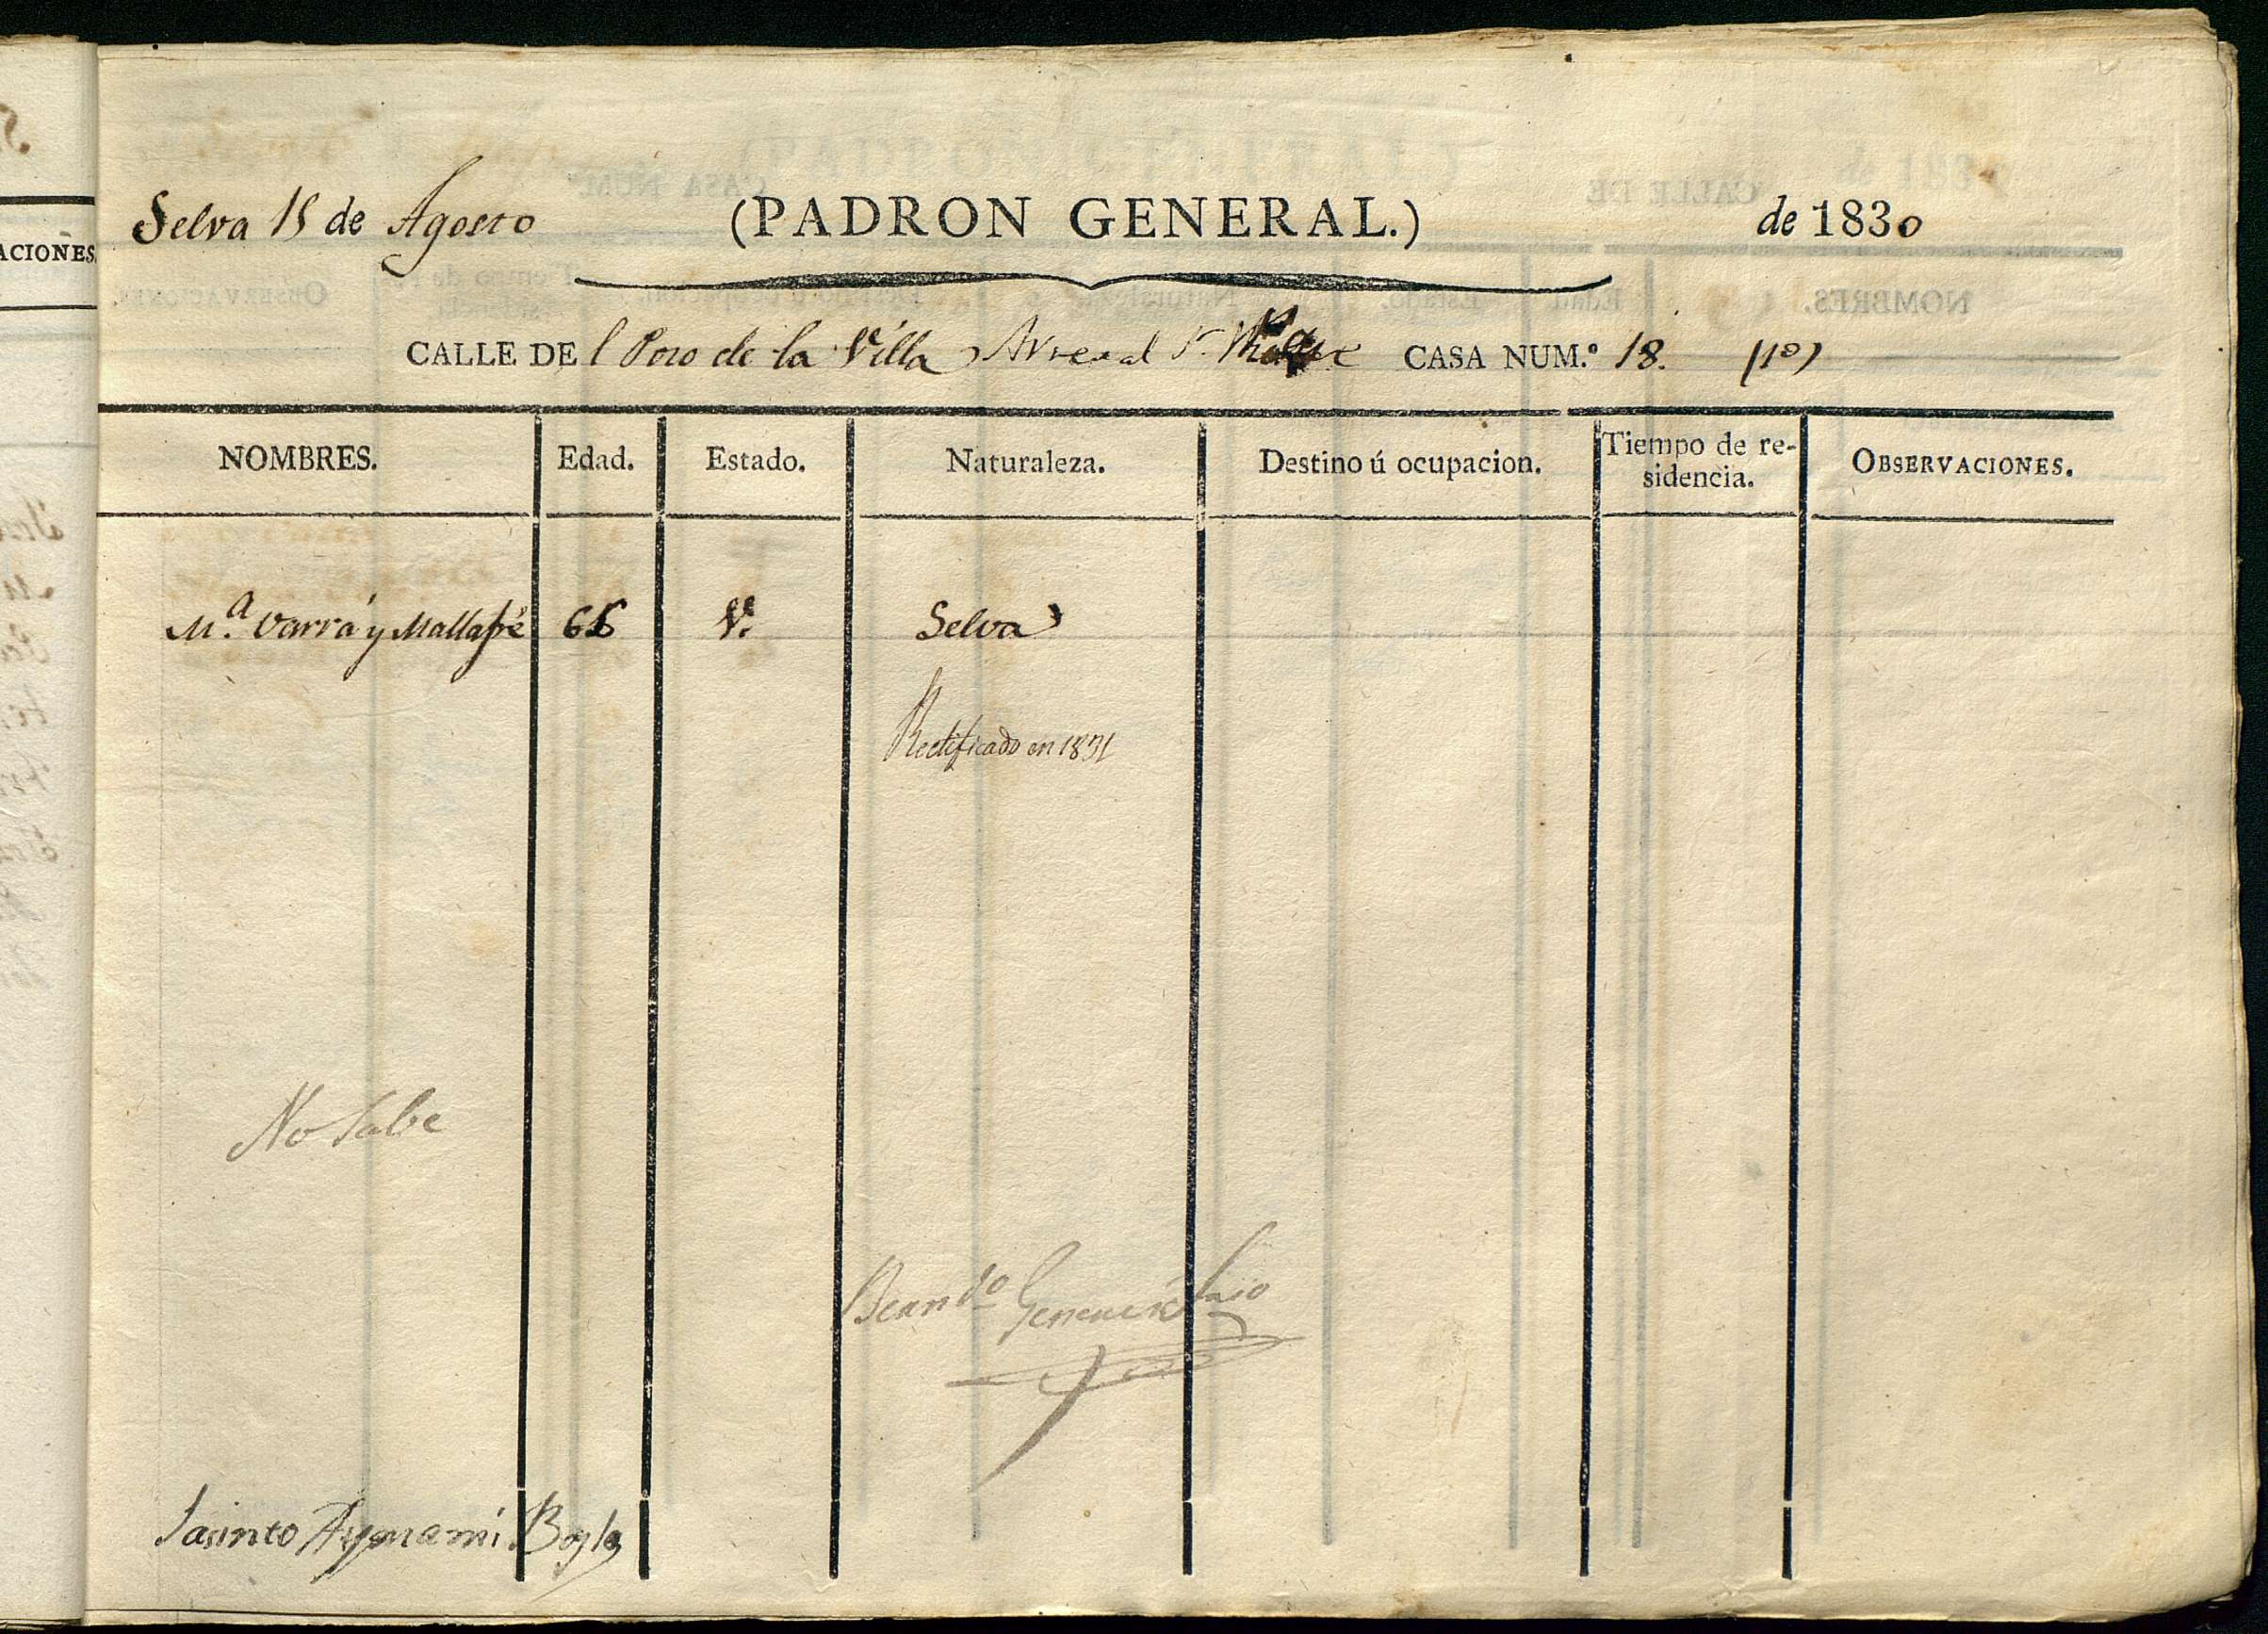 ACIONES.
Selva 15 de Agosto (PADRON GENERAL.) de 1830
CALLE DE l Pozo de la Villa Arrenal CASA NUM.º 18.
NOMBRES. Edad. Estado. Naturaleza. Destino ú ocupacion. Tiempo de re-sidencia. OBSERVACIONES.
M.ª Varrá y Mallafré 66 V.ª Selva
Rectificado en 1831
No Sabe
Jasinto Aymamí Bayle